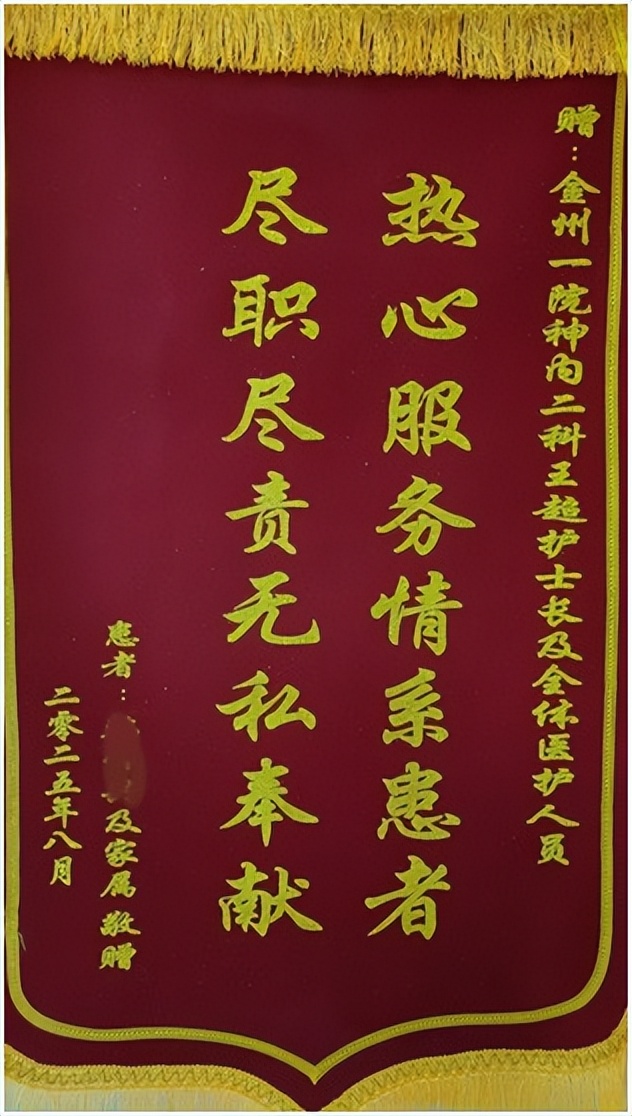 赠：金州一院神内二科王超护士长及全体医护人员
热心服务情系患者
尽职尽责无私奉献
患者：及家属敬赠
二零二五年八月